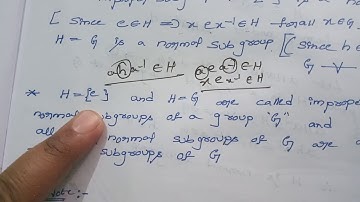 [ Since e∈H ⇒ x e x⁻¹ ∈ H for all x∈G
H = G is a normal subgroup [ Since h
x h x⁻¹ ∈ H x e x⁻¹ ∈ H
x e x⁻¹ ∈ H
* H = {e} and H = G are called improper
normal subgroups of a group "G" and
all normal subgroups of G are
subgroups of G
Note :-